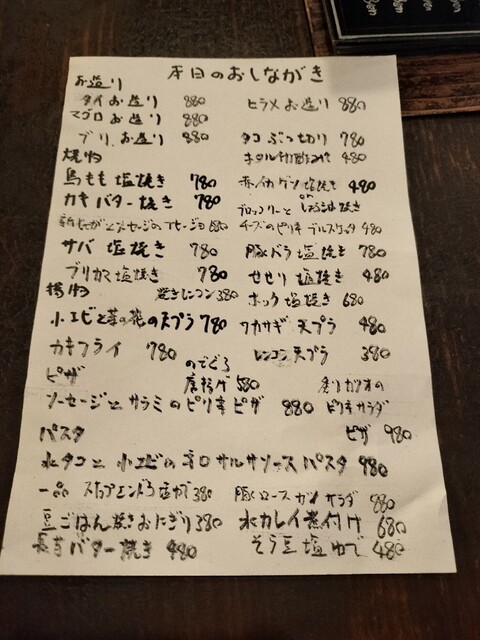 本日のおしながき
お造り
タイお造り 880 ヒラメお造り 880
マグロお造り 880
ブリお造り 880 タコぶつ切り 780
焼物 480
鳥もも塩焼き 780 赤イカゲソ塩焼き 480
カキバター焼き 780 ブロッコリーと しょうゆ焼き
680 チーズのピリ辛ブルスケッタ 480
サバ塩焼き 780 豚バラ塩焼き 780
ブリカマ塩焼き 780 せせり塩焼き 480
揚物 焼きレンコン 380 ホッケ塩焼き 680
小エビと菜の花の天プラ 780 ワカサギ天プラ 480
カキフライ 780 のどぐろ唐揚げ 580 レンコン天プラ 380
ピザ
ソーセージとサラミのピリ辛ピザ 880 ピリ辛サラダピザ 980
パスタ
水タコと小エビの辛口サルサソースパスタ 980
一品 スナップエンドウ塩ゆで 380 豚ロース サラダ 880
豆ごはん焼きおにぎり 380 水カレイ煮付け 680
長芋バター焼き 480 そら豆塩ゆで 480